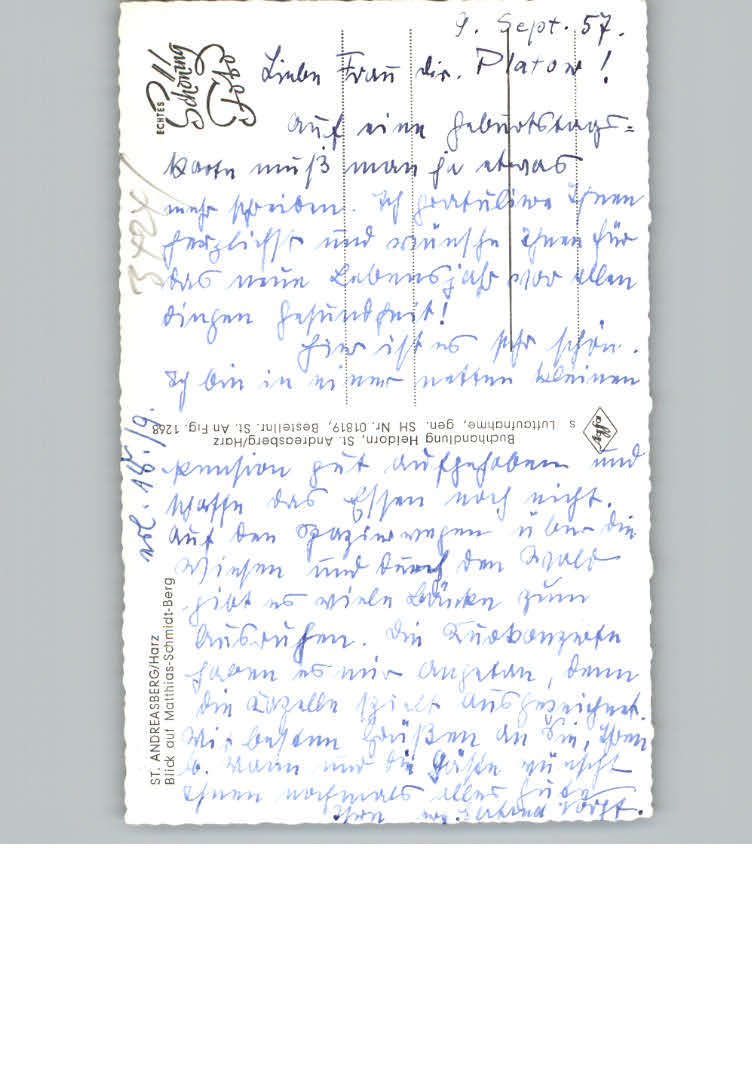 9. Sept. 57.
Liebe Frau Dir. Platow!
Auf eine Geburtstags=
karte muß man ja etwas
mehr schreiben. Ich gratuliere Ihnen
herzlichst und wünsche Ihnen für
das neue Lebensjahr vor allen
Dingen Gesundheit!
Hier ist es sehr schön.
Ich bin in einer netten kleinen
Pension gut aufgehoben und
schaffe das Essen noch nicht.
Auf den Spazierwegen über die
Wiesen und durch den Wald
gibt es viele Bänke zum
Ausruhen. Die Kurkonzerte
haben es mir angetan, denn
die Kapelle spielt ausgezeichnet.
Mit besten Grüßen an Sie, Ihren
Mann und die Gäste wünscht
Ihnen nochmals alles Gute
Ihre
ECHTES
Schöning
Foto
3424/
Buchhandlung Heidorn, St. Andreasberg/Harz
s Luftaufnahme, gen. SH Nr. 01819, Bestellnr. St. An Fig. 1268
Agfa
ST. ANDREASBERG/Harz
Blick auf Matthias-Schmidt-Berg